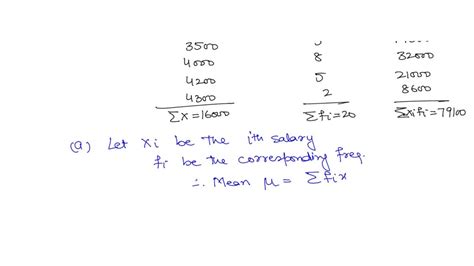 3500
4000 8 32000
4200 5 21000
4300 2 8600
∑x=16000 ∑fi=20 ∑xifi=79100
(a) Let xi be the ith salary
fi be the corresponding freq.
∴ Mean μ = ∑fix